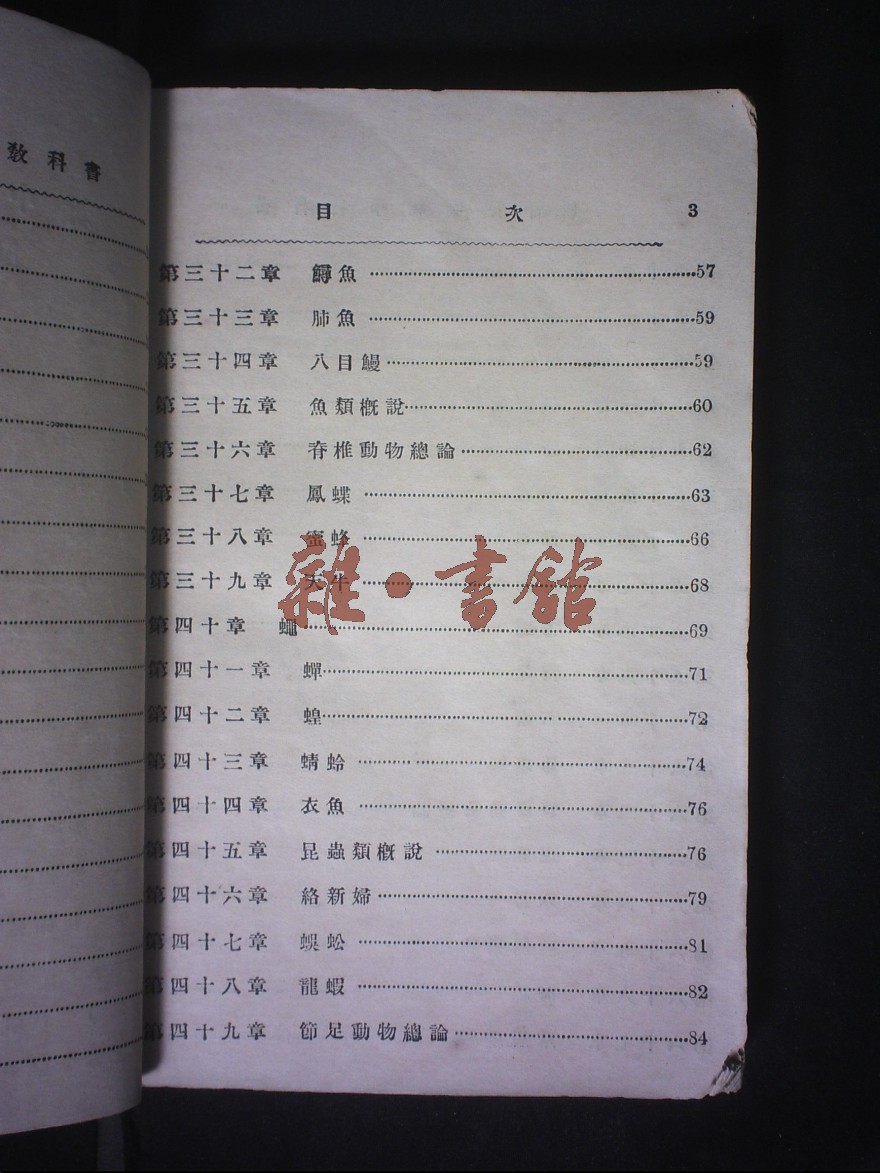 教科書
目次 3
第三十二章 鱘魚 57
第三十三章 肺魚 59
第三十四章 八目鰻 59
第三十五章 魚類概說 60
第三十六章 脊椎動物總論 62
第三十七章 鳳蝶 63
第三十八章 蜜蜂 66
第三十九章 天牛 68
第四十章 蠅 69
第四十一章 蟬 71
第四十二章 蝗 72
第四十三章 蜻蛉 74
第四十四章 衣魚 76
第四十五章 昆蟲類概說 76
第四十六章 絡新婦 79
第四十七章 蜈蚣 81
第四十八章 龍蝦 82
第四十九章 節足動物總論 84
雜·書館